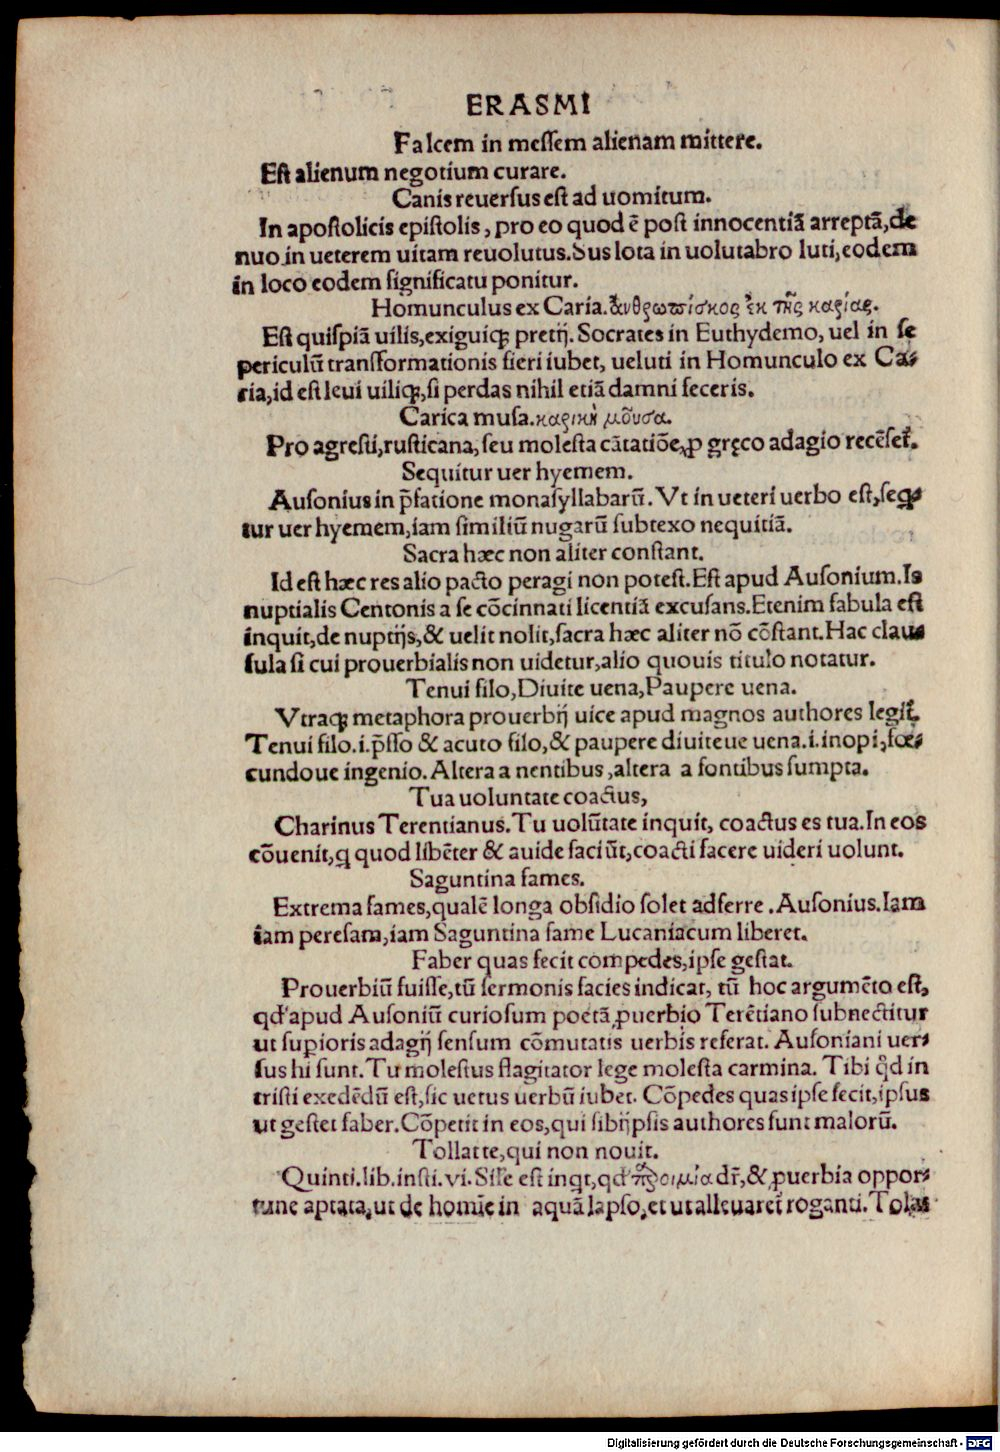 ERASMI
Falcem in meſſem alienam mittere.
Eſt alienum negotium curare.
Canis reuerſus eſt ad uomitum.
In apoſtolicis epiſtolis, pro eo quod ē poſt innocentiā arreptā, de
nuo in ueterem uitam reuolutus. Sus lota in uolutabro luti, eodem
in loco eodem ſignificatu ponitur.
Homunculus ex Caria. ἀνθρωπίσκος ἐκ τῆς καρίας.
Eſt quiſpiā uilis, exiguiq́; pretij. Socrates in Euthydemo, uel in ſe
periculū transformationis fieri iubet, ueluti in Homunculo ex Ca-
ria, id eſt leui uiliq́;, ſi perdas nihil etiā damni feceris.
Carica muſa. καρικὴ μοῦσα.
Pro agreſti, ruſticana, ſeu moleſta cātatiōe, ꝓ gręco adagio recēſet᷑.
Sequitur uer hyemem.
Auſonius in p̄fatione monaſyllabarū. Vt in ueteri uerbo eſt, ſeq-
tur uer hyemem, iam ſimiliū nugarū ſubtexo nequitiā.
Sacra hæc non aliter conſtant.
Id eſt hæc res alio pacto peragi non poteſt. Eſt apud Auſonium. Is
nuptialis Centonis a ſe cōcinnati licentiā excuſans. Etenim fabula eſt
inquit, de nuptijs, & uelit nolit, ſacra hæc aliter nō cōſtant. Hac clau-
ſula ſi cui prouerbialis non uidetur, alio quouis titulo notatur.
Tenui filo, Diuite uena, Paupere uena.
Vtraq́; metaphora prouerbij uice apud magnos authores legit᷑.
Tenui filo .i. p̄ſſo & acuto filo, & paupere diuiteue uena .i. inopi, fœ-
cundoue ingenio. Altera a nentibus, altera a fontibus ſumpta.
Tua uoluntate coactus,
Charinus Terentianus. Tu uolūtate inquit, coactus es tua. In eos
cōuenit, q quod libēter & auide faciūt, coacti facere uideri uolunt.
Saguntina fames.
Extrema fames, qualē longa obſidio ſolet adferre. Auſonius. Iam
iam pereſam, iam Saguntina fame Lucaniacum liberet.
Faber quas fecit compedes, ipſe geſtat.
Prouerbiū fuiſſe, tū ſermonis facies indicat, tū hoc argumēto eſt,
qd' apud Auſoniū curioſum poetā ꝓuerbio Terētiano ſubnectitur
ut ſuꝑioris adagij ſenſum cōmutatis uerbis referat. Auſoniani uer-
ſus hi ſunt. Tu moleſtus flagitator lege moleſta carmina. Tibi qd in
triſti exedēdū eſt, ſic uetus uerbū iubet. Cōpedes quas ipſe fecit, ipſus
ut geſtet faber. Cōpetit in eos, qui ſibijpſis authores ſunt malorū.
Tollat te, qui non nouit.
Quinti. lib. inſti. vi. Siſe eſt inqt, qd' προιμία dr̄, & ꝓuerbia oppor-
tune aptata, ut de homīe in aquā lapſo, et ut alleuaret᷑ roganti. Tolat
Digitalisierung gefördert durch die Deutsche Forschungsgemeinschaft - DFG